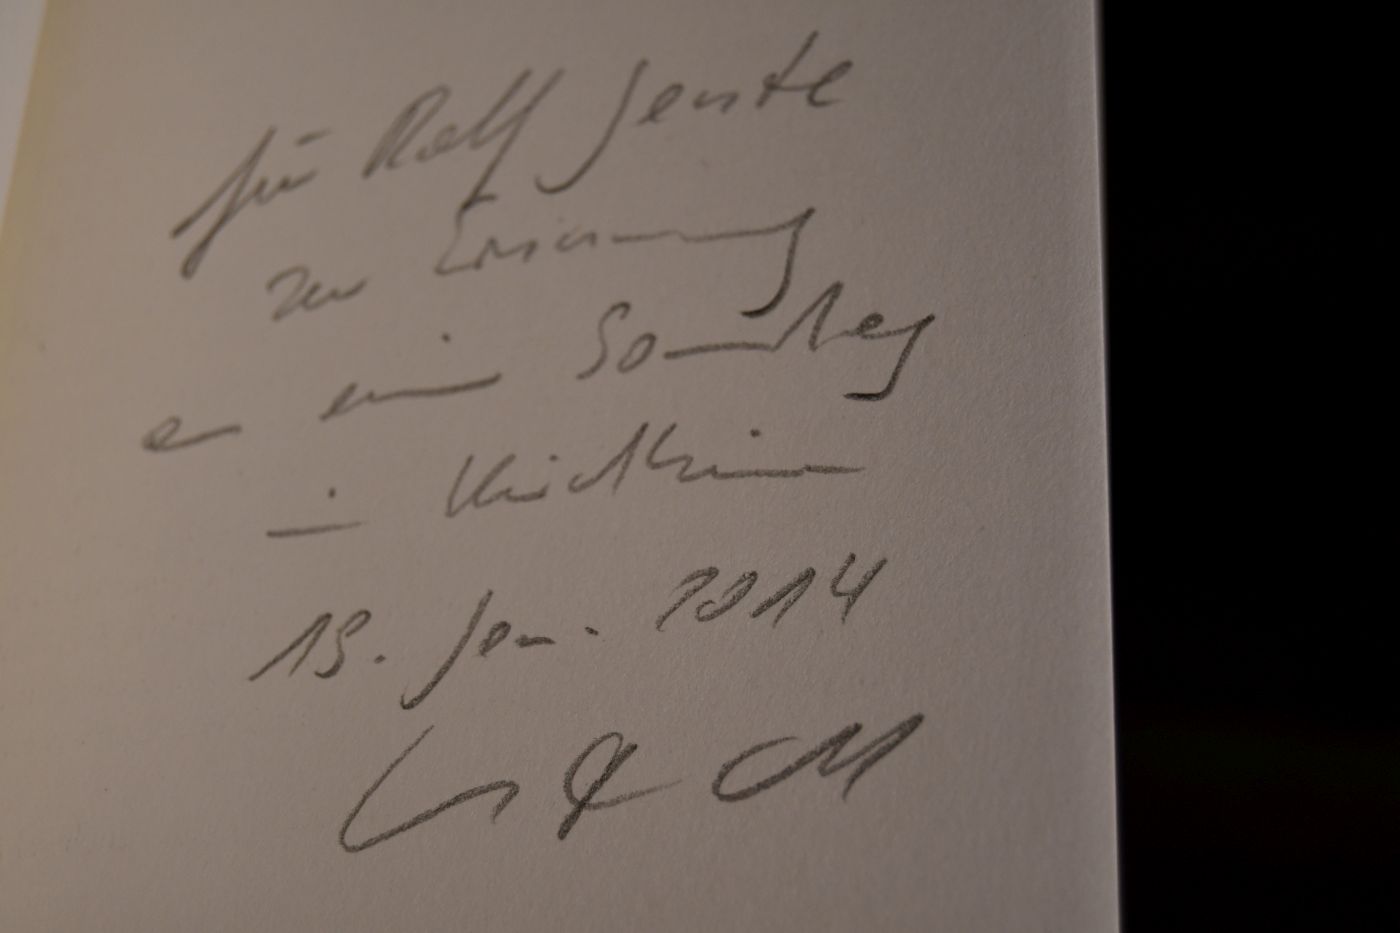 für Ralf Jenste
zur Erinnerung
an einen Sonntag
in Kirchheim
19. Jan. 2014